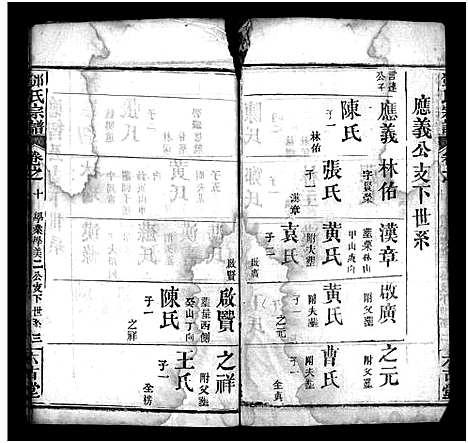 應義公支下世系
言達公子
應義
陳氏
子一
林佑
林佑
字景榮
張氏
子一
漢章
漢章
葬葉林山
甲山庚向
黄氏
附夫塋
袁氏
子二
啟賢
啟廣
附父塋
黄氏
附夫塋
子一
之元
啟賢
葬屋西側
癸山丁向
陳氏
子一
之祥
之元
附父塋
曹氏
附夫塋
子一
全典
之祥
附父塋
王氏
子一
全榜
鄧氏宗譜
卷之十
學業學美二公支下世系
三
六吉堂